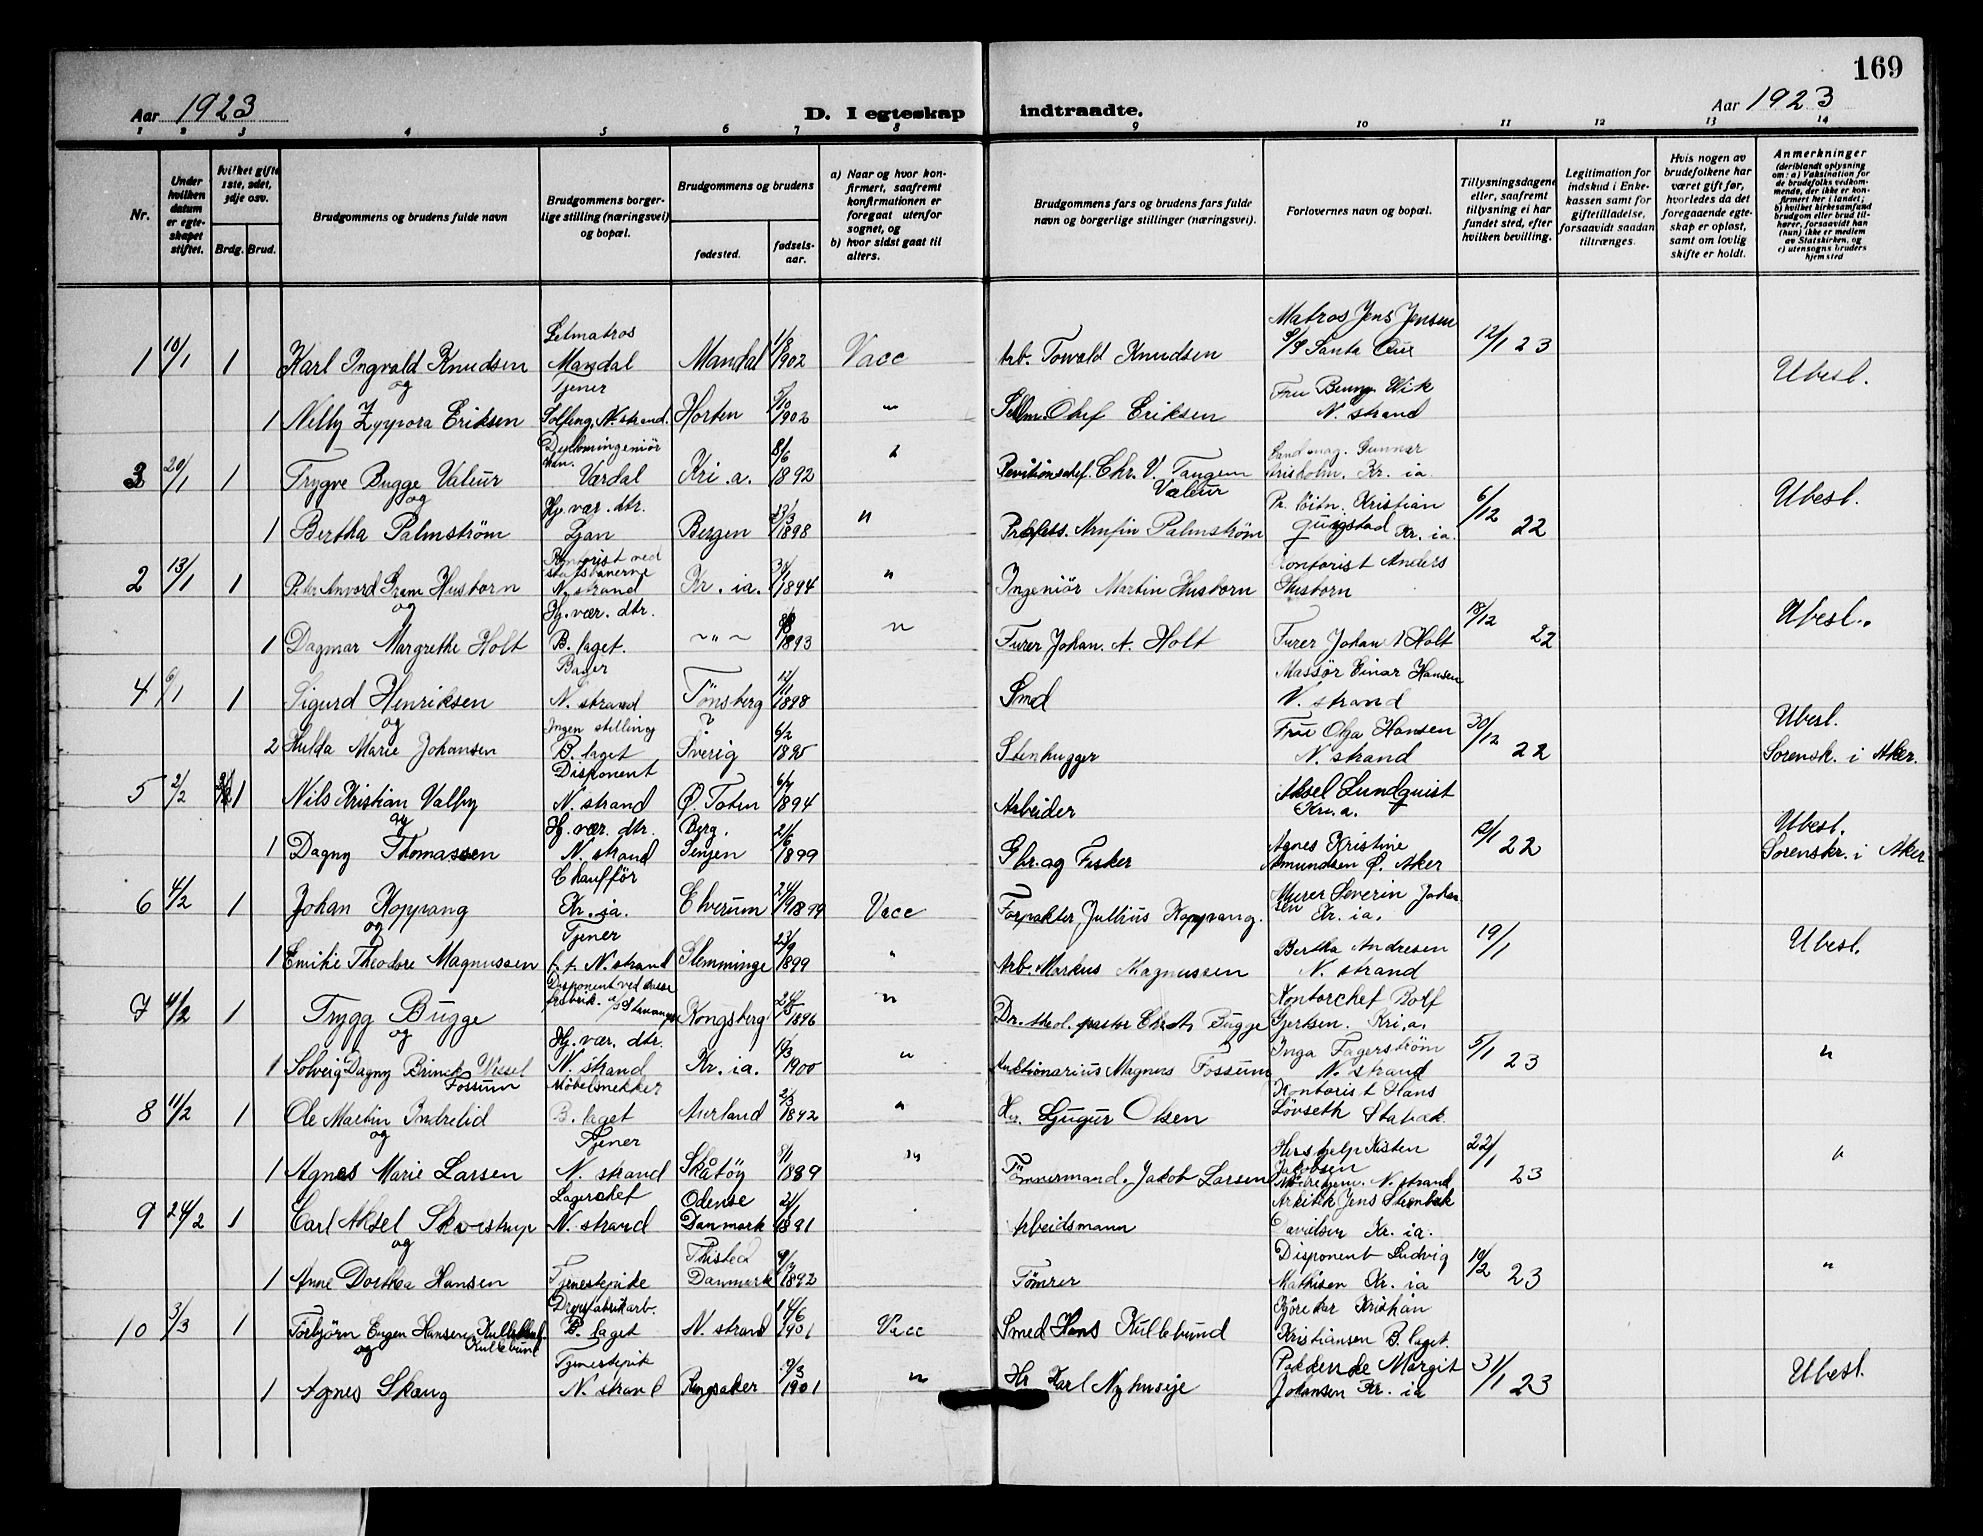 169
Aar 1923
D. I egteskap indtraadte.
Aar 1923
1 2 3 4 5 6 7 8 9 10 11 12 13 14
Nr.
Under hvilken datum er egteskapet stiftet.
hvilket gifte 1ste, 2det, 3dje osv.
Brdg. Brud.
Brudgommens og brudens fulde navn
Brudgommens borgerlige stilling (næringsvei) og bopæl.
Brudgommens og brudens
fødested.
fødselsaar.
a) Naar og hvor konfirmert, saafremt konfirmationen er foregaat utenfor sognet, og
b) hvor sidst gaat til alters.
Brudgommens fars og brudens fars fulde navn og borgerlige stillinger (næringsvei).
Forlovernes navn og bopæl.
Tillysningsdagene eller, saafremt tillysning ei har fundet sted, efter hvilken bevilling.
Legitimation for indskud i Enkekassen samt for giftetilladelse, forsaavidt saadan tiltrænges.
Hvis nogen av brudefolkene har været gift før, hvorledes da det foregaaende egteskap er opløst, samt om lovlig skifte er holdt.
Anmerkninger
(deriblandt oplysning om: a) Vaksination for de brudefolks vedkommende, der ikke er konfirmert her i landet;
b) hvilket kirkesamfund brudgom eller brud tilhører, forsaavidt han (hun) ikke er medlem av Statskirken, og
c) utensogns bruders hjemsted
Letmatros
Matros Jens Jensen
1 10/1 1 Karl Ingvald Knudsen Mandal Mandal 1/8 1902 Vacc Arb. Towald Knudsen S/S Santa 12/1 23 Ubesl.
og Tjener
1 Nelly Zyppora Eriksen N. strand. Horten 5/10 1902 " Olef Eriksen Fru Wik N. strand
3 20/1 1 Trygve Bugge Valeur Diplomingeniör Værdal Kri.a. 8/6 1892 Chr. V. Tangen Valeur Kr. ia
og Hj. vær. dtr.
1 Bertha Palmström Ljan Bergen 23/3 1898 " Profess. Arnfin Palmström Pr. löitn. Kristian Kr. ia. 6/12 22 Ubesl.
2 13/1 1 Peter Anvord Gram Husborn Kontorist ved statsbanerne N. strand Kr. ia. 1894 " Ingeniör Martin Husborn Kontorist Anders Husborn
og Hj. vær. dtr.
1 Dagmar Margrethe Holt B. laget. ~"~ 1893 " Furer Johan. A. Holt Furer Johan A Holt 18/12 22 Ubesl.
Bager Massör Einar Hansen
4 6/1 1 Sigurd Henriksen N. strand Tönsberg 12/11 1898 Smed N. strand
og Ingen stilling
2 Hulda Marie Johansen B. laget Sverig 6/2 1895 Stenhugger Frue Olga Hansen N. strand 30/12 22 Ubesl. Sorensk. i Aker.
Disponent
5 2/2 1 Nils Kristian Valby N. strand Ø. Toten 6/7 1894 Arbeider Aksel Lundquist Kri.a.
og Hj. vær. dtr.
1 Dagny Thomassen N. strand Berg. Senjen 2/6 1899 Gbr. og Fisker Agnes Kristine Amundsen Ø. Aker 12/1 22 Ubesl. Sorenskr. i Aker
Chaufför
6 4/2 1 Johan Koppang Kr. ia. Elverum 24/9 1899 Vacc Forpakter Jullius Koppang. Murer Severin Johansen Kr. ia.
og Tjener
1 Emilie Theodore Magnussen f. t. N. strand Glemminge 23/9 1899 " Arb. Markus Magnussen Bertha Andresen N. strand 19/1 Ubesl.
7 4/2 1 Trygg Bugge Disponent ved fabrik. Kongsberg 1896 " Dr. theol. pastor Chr. A. Bugge Kontorchef Rolf Gjertsen. Kri.a.
og Hj. vær. dtr.
1 Solveig Dagny Brinck Wessel Fossum N. strand Kr. ia. 1900 " Auktionarius Magnus Fossum Inga Fagerström N. strand 5/1 23 "
Möbelsnekker
8 11/2 1 Ole Martin Indrelid B. laget Aurland 2/3 1892 " Olsen Kontorist Hans Lövseth Stabæk.
og Tjener
1 Agnes Marie Larsen N. strand Skåtöy 1889 " Tömmermand. Jakob Larsen Kisten Jakobsen N. strand 22/1 23 "
Lagerchef Odense
9 24/2 1 Carl Aksel N. strand Danmark 1891 Arbeidsmann Arkitek Jens Kr. ia.
og
1 Anne Dorthea Hansen Tjenestepike Thisted Danmark 1892 Tömrer Disponent Ludvig Mathisen Kr. ia 10/2 23 "
10 3/3 1 Torbjörn Eugen Hansen Kullebund B. laget N. strand 14/6 1901 Vacc Smed Hans Kullebund Kristian Kristiansen B. laget.
og
1 Agnes Skaug Tjenestepik N. strand Ringsaker 9/3 1901 " Karl Nyhuseje Margit Johansen Kr. ia 31/1 23 Ubesl.